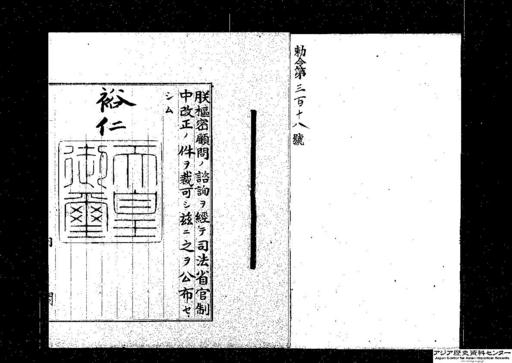 勅令第三百十八號
朕樞密顧問ノ諮詢ヲ經テ司法省官制
中改正ノ件ヲ裁可シ玆ニ之ヲ公布セ
シム
裕仁
天皇
御璽
アジア歴史資料センター
Japan Center for Asian Historical Records